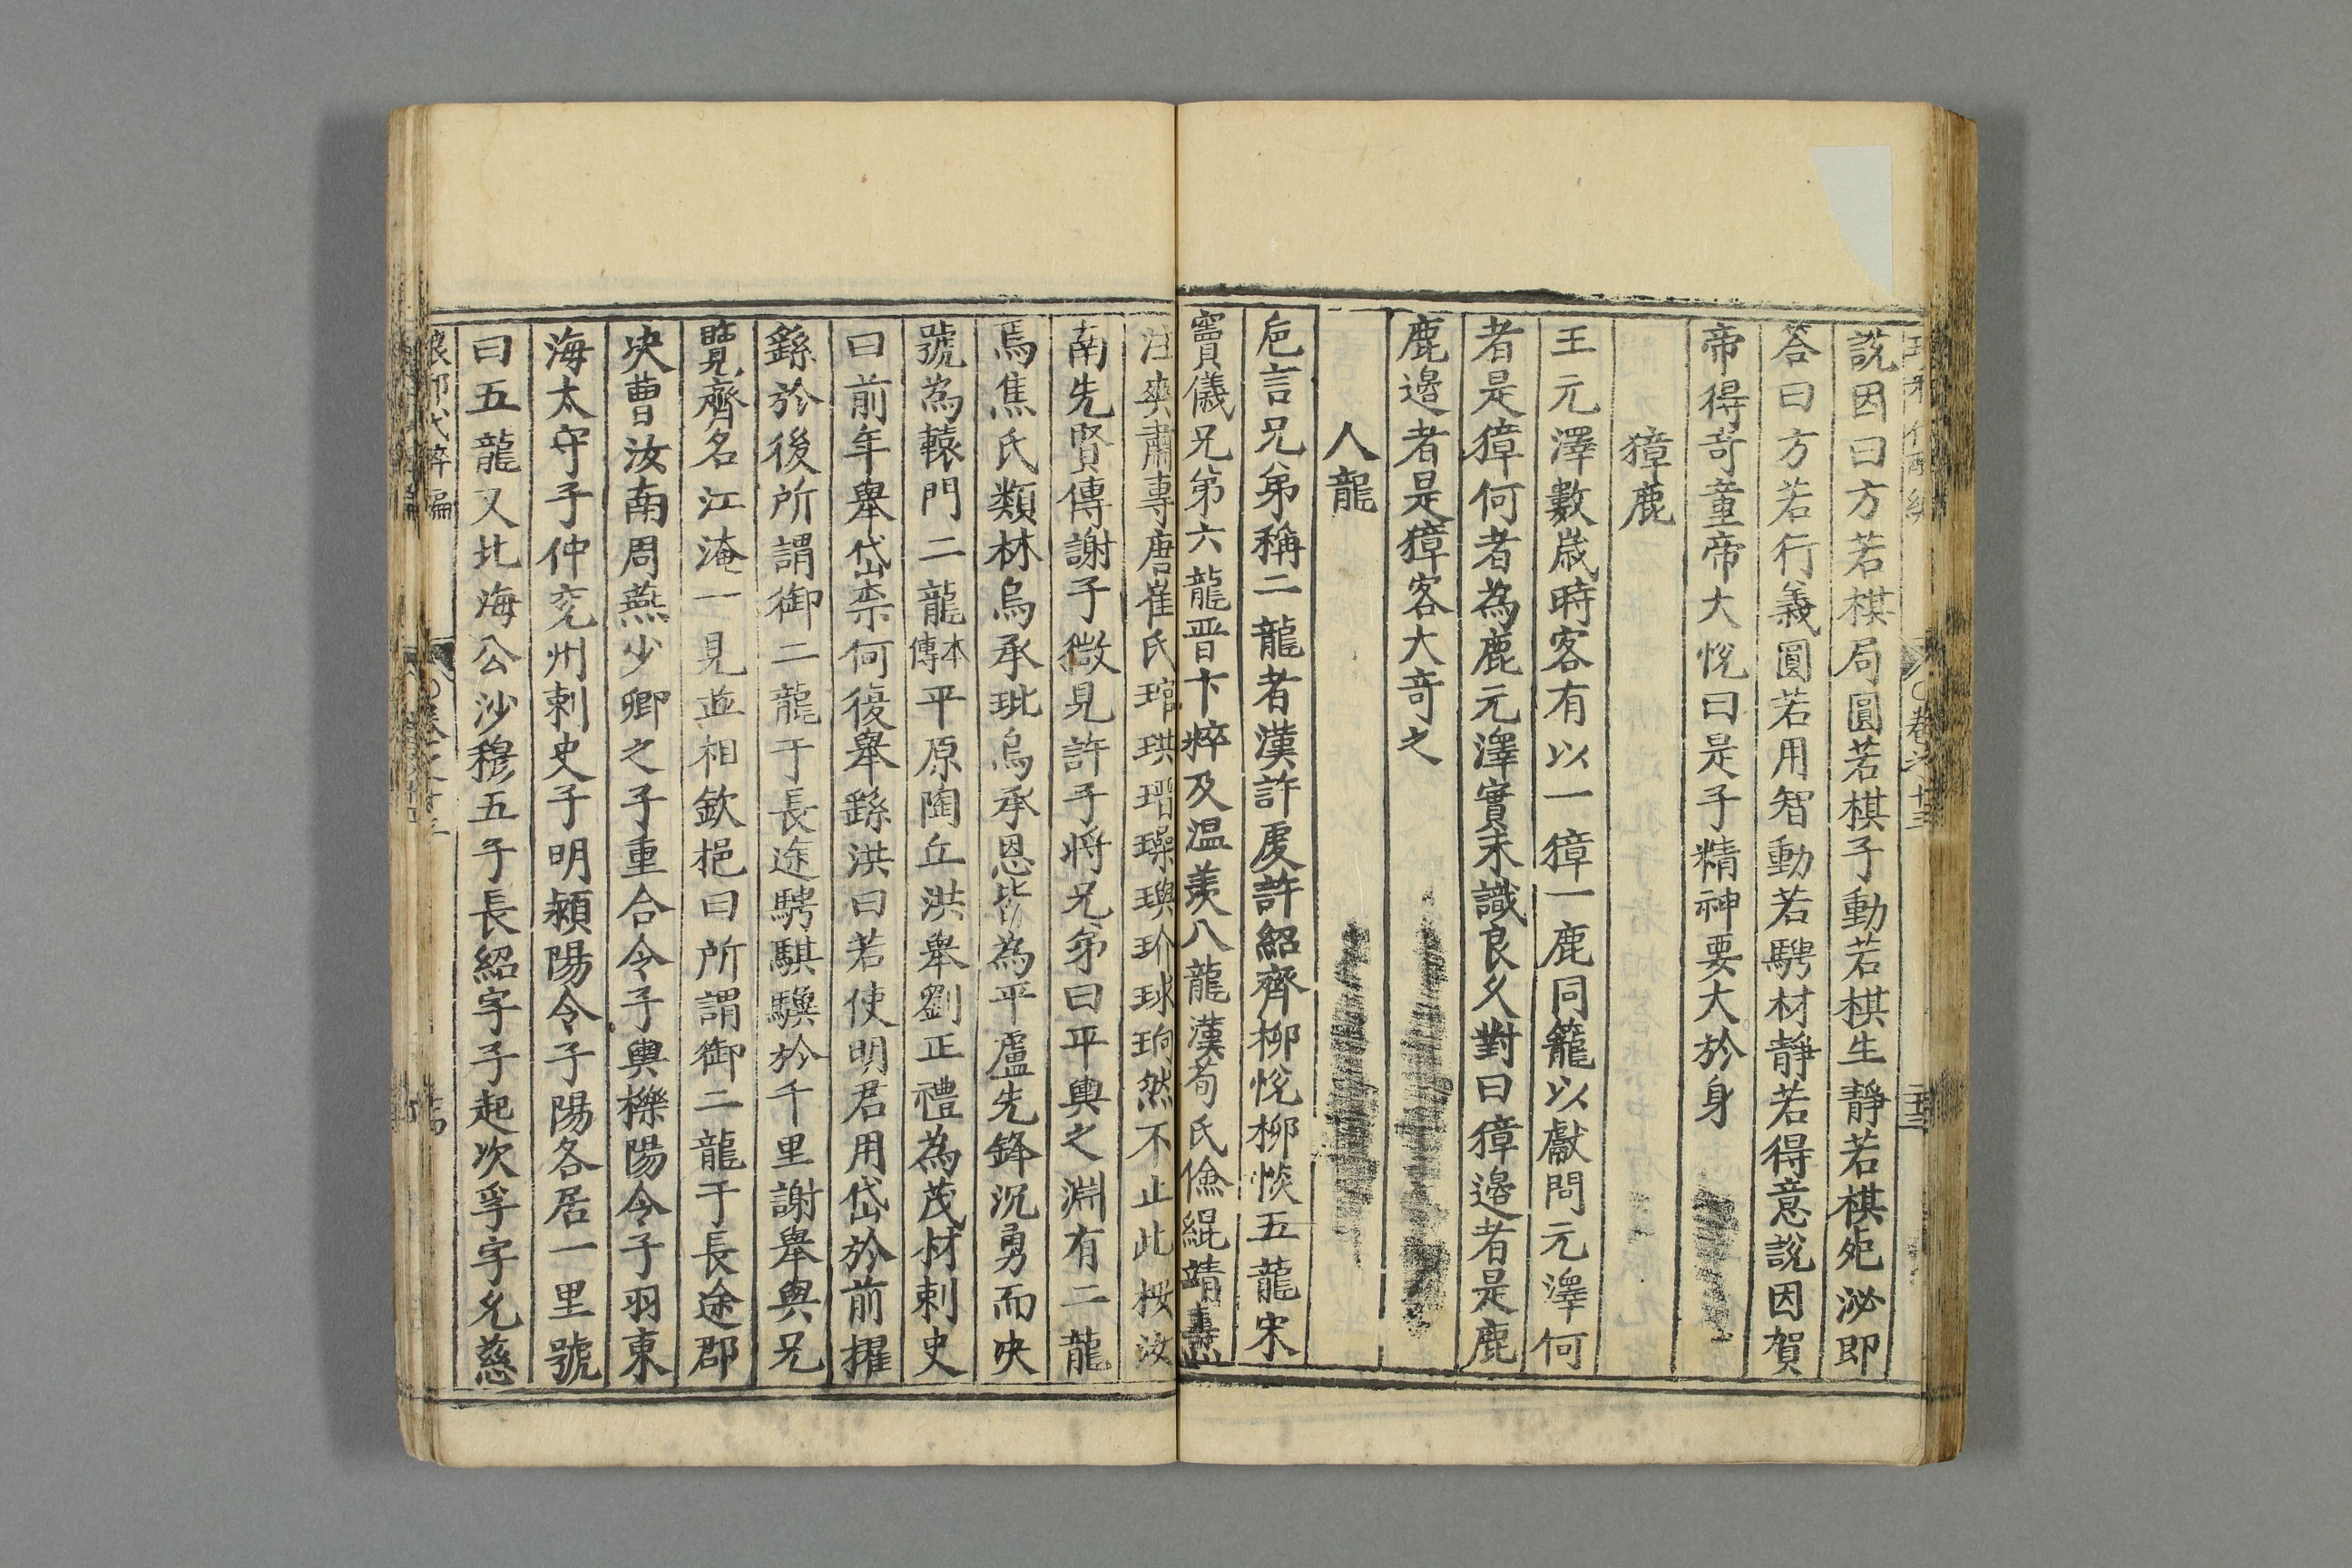 說因曰方若棋局圓若棋子動若棋生靜若棋死泌即
答曰方若行義圓若用智動若騁材靜若得意說因賀
帝得奇童帝大悅曰是子精神要大於身
獐鹿
王元澤數歲時客有以一獐一鹿同籠以獻問元澤何
者是獐何者為鹿元澤實未識良久對曰獐邉者是鹿
鹿邉者是獐客大奇之
人龍
巵言兄弟稱二龍者漢許虔許紹齊柳悅柳惔五龍宋
竇儀兄弟六龍晋卞粹及温羨八龍漢荀氏儉緄靖燾
汪爽肅專唐崔氏琯珙瑨璪璵玠球珦然不止此桉汝
南先賢傳謝子微見許子將兄弟曰平輿之淵有二龍
焉焦氏類林烏承玼烏承恩皆為平盧先鋒沉勇而决
號為轅門二龍本傳平原陶丘洪舉劉正禮為茂材刺史
曰前年舉岱柰何復舉繇洪曰若使明君用岱於前擢
繇於後所謂御二龍于長途騁騏驥於千里謝舉與兄
覽齊名江淹一見並相欽挹曰所謂御二龍于長途郡
决曹汝南周燕少卿之子重合令子輿櫟陽令子羽東
海太守子仲兖州刺史子明潁陽令子陽各居一里號
曰五龍又北海公沙穆五子長紹字子起次孚字允慈